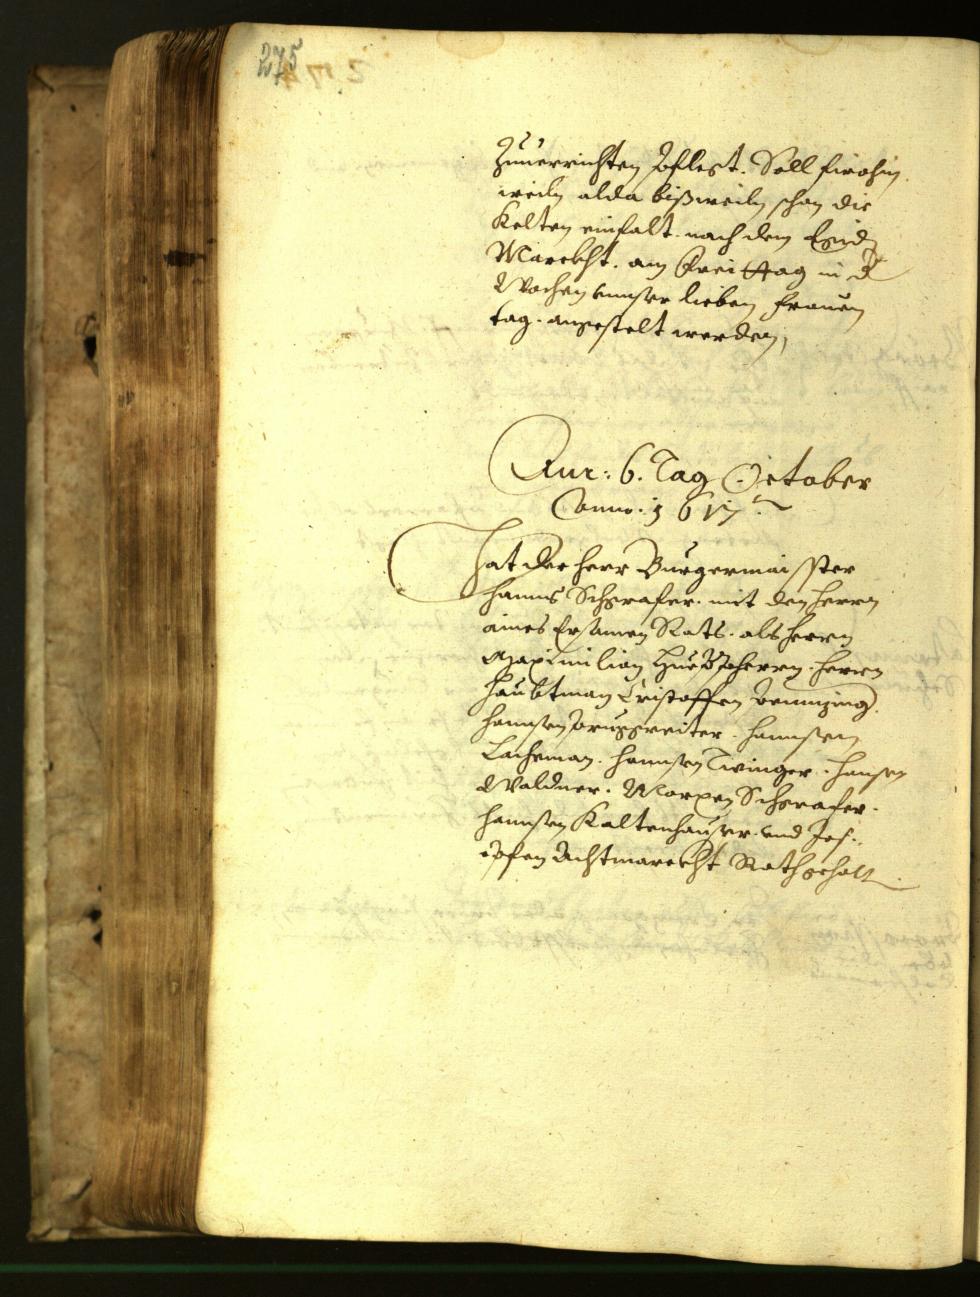 275
zuuerrichten pflegt. Soll firohin
weiln alda bißweiln schon die
Kelten einfalt. nach dem Endn
Marckht. am Freittag in d
Wochen vnnser lieben frauen
tag. angestelt werden,
Adi: 6. Tag October
Anno: 1617
Hat der herr Burgermaisster
Hanns Schgrafer. mit den herrn
aines Ersamen Rats. als herrn
Maximilian herrn. herrn
haubtman Cristoffen
Hannsen. Hannsen
Lachman. Hannsen Twinger. Hansen
Waldner. Marxen Schgrafer.
Hannsen Kaltenhauser. vnd Jos:
epfen Achtmarckht Rath gehalt